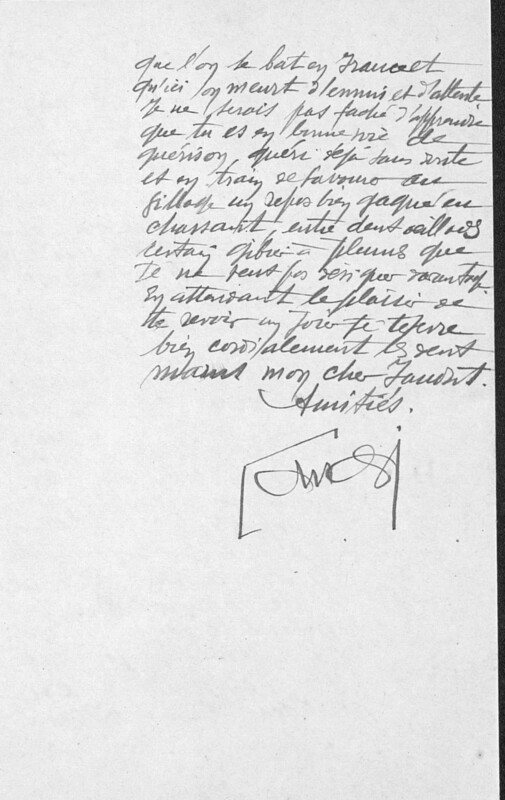 que l'on se bat en France et
qu'ici on meurt d'ennuis et d'attente
Je ne serais pas faché d'apprendre
que tu es en bonne voie de
guérison, guéri déjà sans doute
et en train de savourer au
village un repos bien gagné en
chassant, entre deux
certain gibier à plumes que
je ne veux pas désigner davantage.
En attendant le plaisir de
te revoir un jour je te serre
bien cordialement les deux
mains mon cher
Amitiés.